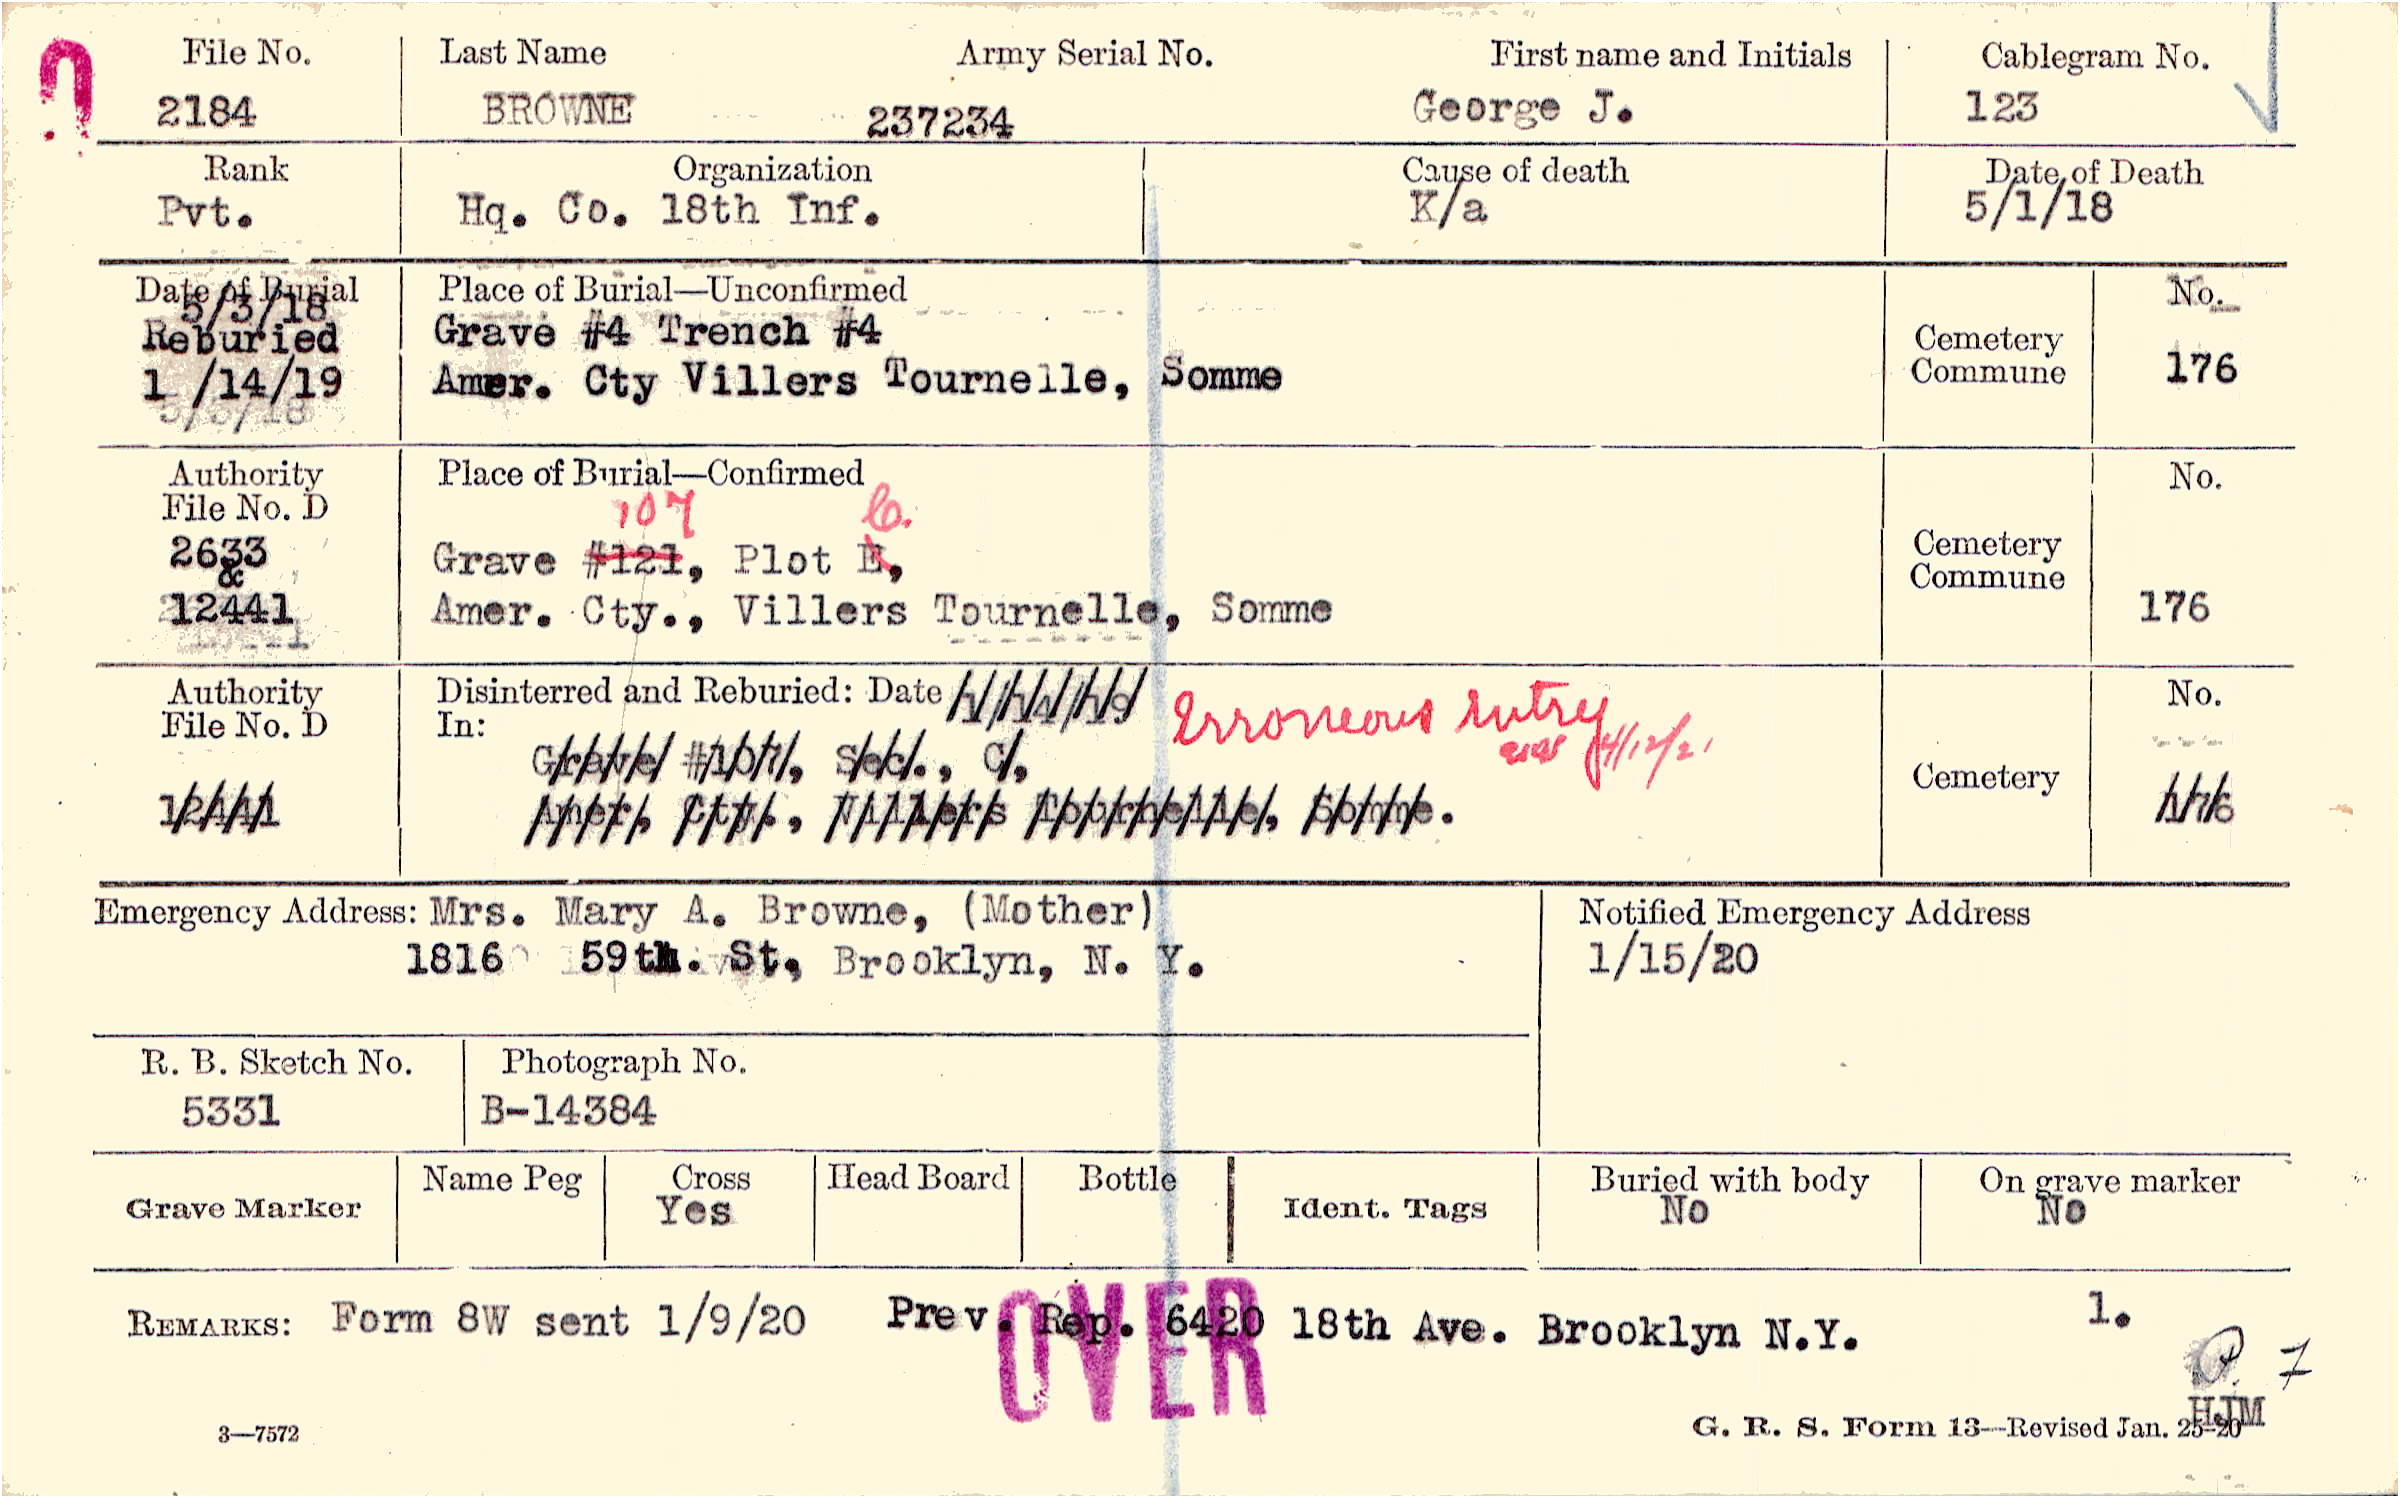 File No. Last Name Army Serial No. First name and Initials Cablegram No.
2184 BROWNE 237234 George J. 123
Rank Organization Cause of death Date of Death
Pvt. Hq. Co. 18th Inf. K/a 5/1/18
Date of Burial Place of Burial—Unconfirmed No.
5/3/18
Reburied Grave #4 Trench #4 Cemetery
1 /14/19 Amer. Cty Villers Tournelle, Somme Commune 176
5/3/18
Authority Place of Burial—Confirmed No.
File No. D 107 C.
2633 Grave #121, Plot E, Cemetery
& Commune
12441 Amer. Cty., Villers Tournelle, Somme 176
Authority Disinterred and Reburied: Date 1/14/19 Erroneous Entry No.
File No. D In: 4/12/21
Grave #107, Sec., C, Cemetery
12441 Amer. Cty., Villers Tournelle, Somme. 176
Emergency Address: Mrs. Mary A. Browne, (Mother) Notified Emergency Address
1816 59th. St, Brooklyn, N. Y. 1/15/20
R. B. Sketch No. Photograph No.
5331 B-14384
Grave Marker Name Peg Cross Head Board Bottle Ident. Tags Buried with body On grave marker
Yes No No
REMARKS: Form 8W sent 1/9/20 Prev. Rep. 6420 18th Ave. Brooklyn N.Y. 1.
OVER
7
HJM
3—7572 G. R. S. Form 13—Revised Jan. 25-20